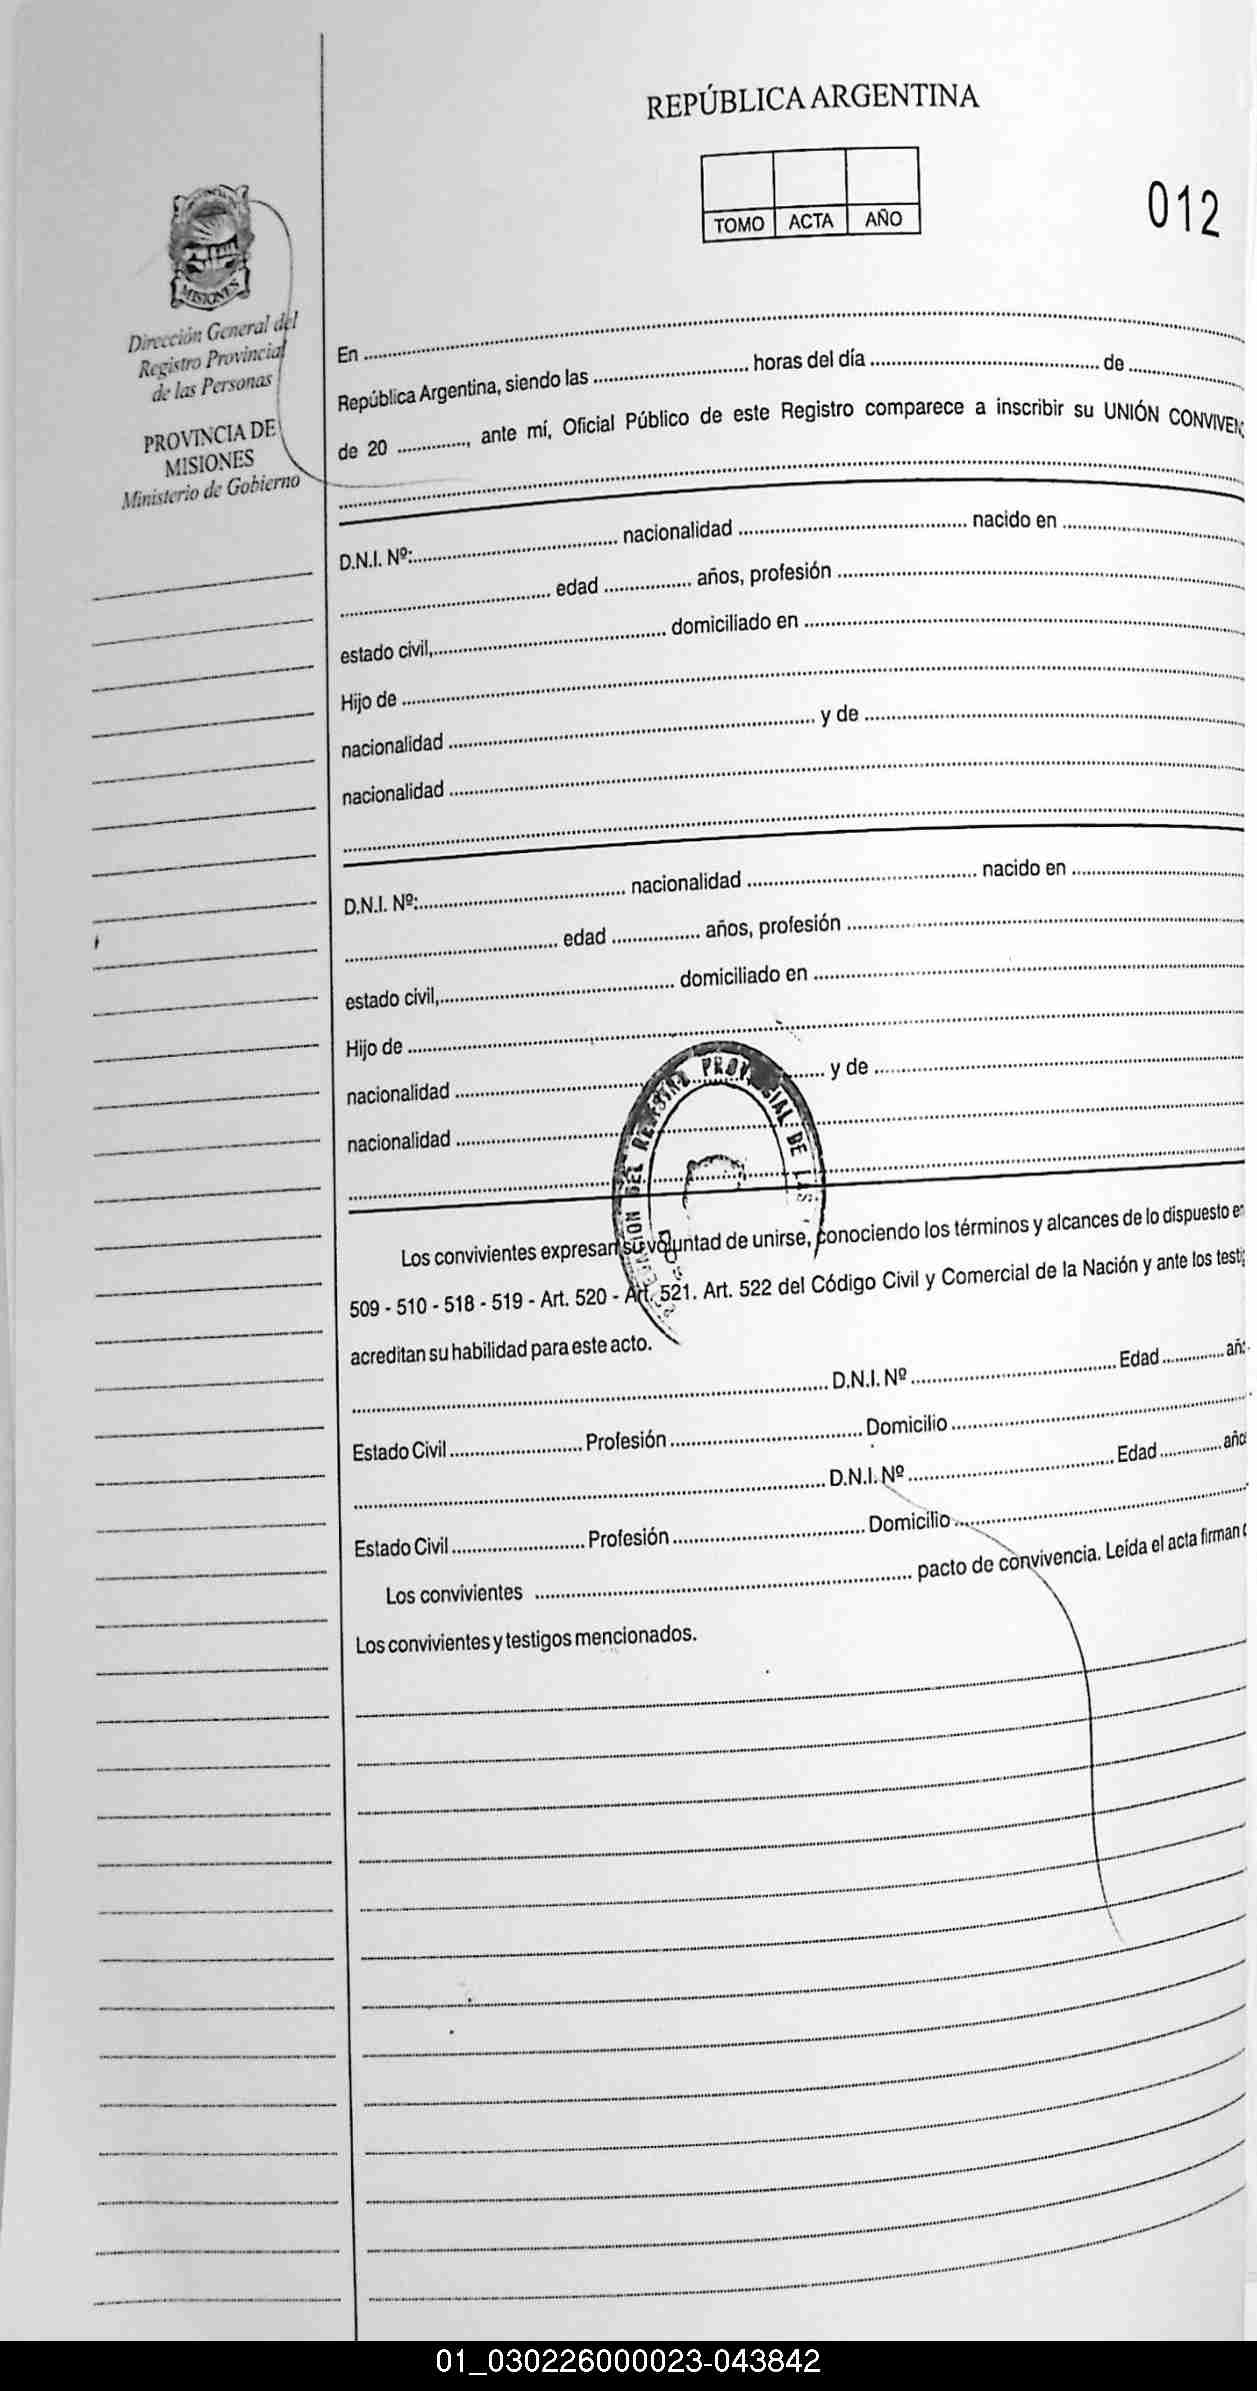 REPÚBLICA ARGENTINA
TOMO ACTA AÑO
012
MISIONES
Dirección General del
Registro Provincial
de las Personas
PROVINCIA DE
MISIONES
Ministerio de Gobierno
En ........................................
República Argentina, siendo las .................... horas del día .................... de ....................
de 20 ............., ante mí, Oficial Público de este Registro comparece a inscribir su UNIÓN CONVIVEN
D.N.I. Nº:.................... nacionalidad .................... nacido en ....................
.................... edad ................ años, profesión ....................
estado civil,.................... domiciliado en ....................
Hijo de ....................
nacionalidad .................... y de ....................
nacionalidad ....................
D.N.I. Nº:.................... nacionalidad .................... nacido en ....................
.................... edad ................ años, profesión ....................
estado civil,.................... domiciliado en ....................
Hijo de ....................
nacionalidad .................... y de ....................
nacionalidad ....................
DEL REGISTRO PROVINCIAL DE LAS
Los convivientes expresan su voluntad de unirse, conociendo los términos y alcances de lo dispuesto en
509 - 510 - 518 - 519 - Art. 520 - Art. 521. Art. 522 del Código Civil y Comercial de la Nación y ante los
acreditan su habilidad para este acto.
.................... D.N.I. Nº .................... Edad ............. añ
Estado Civil .................... Profesión .................... Domicilio ....................
.................... D.N.I. Nº .................... Edad ............. año
Estado Civil .................... Profesión .................... Domicilio ....................
Los convivientes .................... pacto de convivencia. Leída el acta firman
Los convivientes y testigos mencionados.
01_030226000023-043842